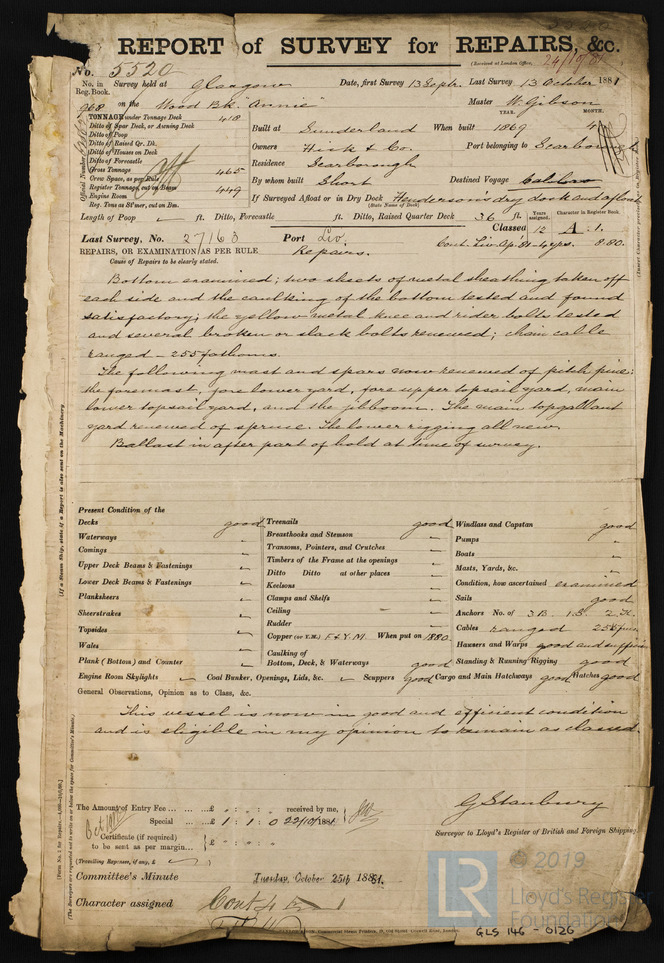 REPORT of SURVEY for REPAIRS, &c.
(Received at London Office, 24/10/81
No. 5520
No. in Reg. Book. Survey held at Glasgow Date, first Survey 13 Septr. Last Survey 13 October 1881
968 on the Wood Bk. "Annie" Master W. Gibson
TONNAGE under Tonnage Deck 418
Ditto of Spar Deck, or Awning Deck
Ditto of Poop
Ditto of Raised Qr. Dk.
Ditto of Houses on Deck
Ditto of Forecastle
Gross Tonnage 465
Crew Space, as per Rule
Register Tonnage, cut on Beam 449
Engine Room
Reg. Tons as St'mer, cut on Bm.
Official Number
YEAR. MONTH.
Built at Sunderland When built 1869 4
Owners Hick & Co. Port belonging to Scarborough
Residence Scarborough
By whom built Short Destined Voyage
If Surveyed Afloat or in Dry Dock Henderson's dry dock and afloat
(State Name of Dock)
Length of Poop ft. Ditto, Forecastle ft. Ditto, Raised Quarter Deck 36 ft.
Years assigned. Character in Register Book.
Classed 12 A 1.
Last Survey, No. 27163 Port Liv. Cont. Liv. Ap. 81 - 4 yrs. 8.80.
REPAIRS, OR EXAMINATION AS PER RULE Repairs.
Cause of Repairs to be clearly stated.
Bottom examined; two sheets of metal sheathing taken off
each side and the caulking of the bottom tested and found
satisfactory; the yellow metal knee and rider bolts tested
and several broken or slack bolts renewed; chain cable
ranged - 255 fathoms.
The following mast and spars now renewed of pitch pine:
the foremast, fore lower yard, fore upper topsail yard, main
lower topsail yard, and the jibboom. The main topgallant
yard renewed of spruce. The lower rigging all new.
Ballast in after part of hold at time of survey.
Present Condition of the
Decks good
Waterways "
Comings "
Upper Deck Beams & Fastenings "
Lower Deck Beams & Fastenings "
Planksheers "
Sheerstrakes "
Topsides "
Wales "
Plank (Bottom) and Counter "
Engine Room Skylights
Treenails good
Breasthooks and Stemson "
Transoms, Pointers, and Crutches "
Timbers of the Frame at the openings "
Ditto Ditto at other places "
Keelsons "
Clamps and Shelfs "
Ceiling "
Rudder "
Copper (or Y.M.) F & Y.M. When put on 1880
Caulking of
Bottom, Deck, & Waterways good
Coal Bunker, Openings, Lids, &c. Scuppers good
Windlass and Capstan good
Pumps "
Boats "
Masts, Yards, &c. "
Condition, how ascertained examined
Sails good
Anchors No. of 3 B. 1 S. 2 K.
Cables ranged
Hausers and Warps good and sufficient
Standing & Running Rigging good
Cargo and Main Hatchways good Hatches good
General Observations, Opinion as to Class, &c.
This vessel is now in good and efficient condition
and is eligible in my opinion to remain as classed.
The Amount of Entry Fee ... £ : : received by me,
Special ... £ 1 : 1 : 0 22/10/1881
Certificate (if required)
to be sent as per margin... £ : :
(Travelling Expenses, if any, £ )
G Stanbury
Surveyor to Lloyd's Register of British and Foreign Shipping.
Committee's Minute Tuesday, October 25th 1881.
Character assigned Cont 4
© 2019
LR
Lloyd's Register
Foundation
GLS 146 - 0126